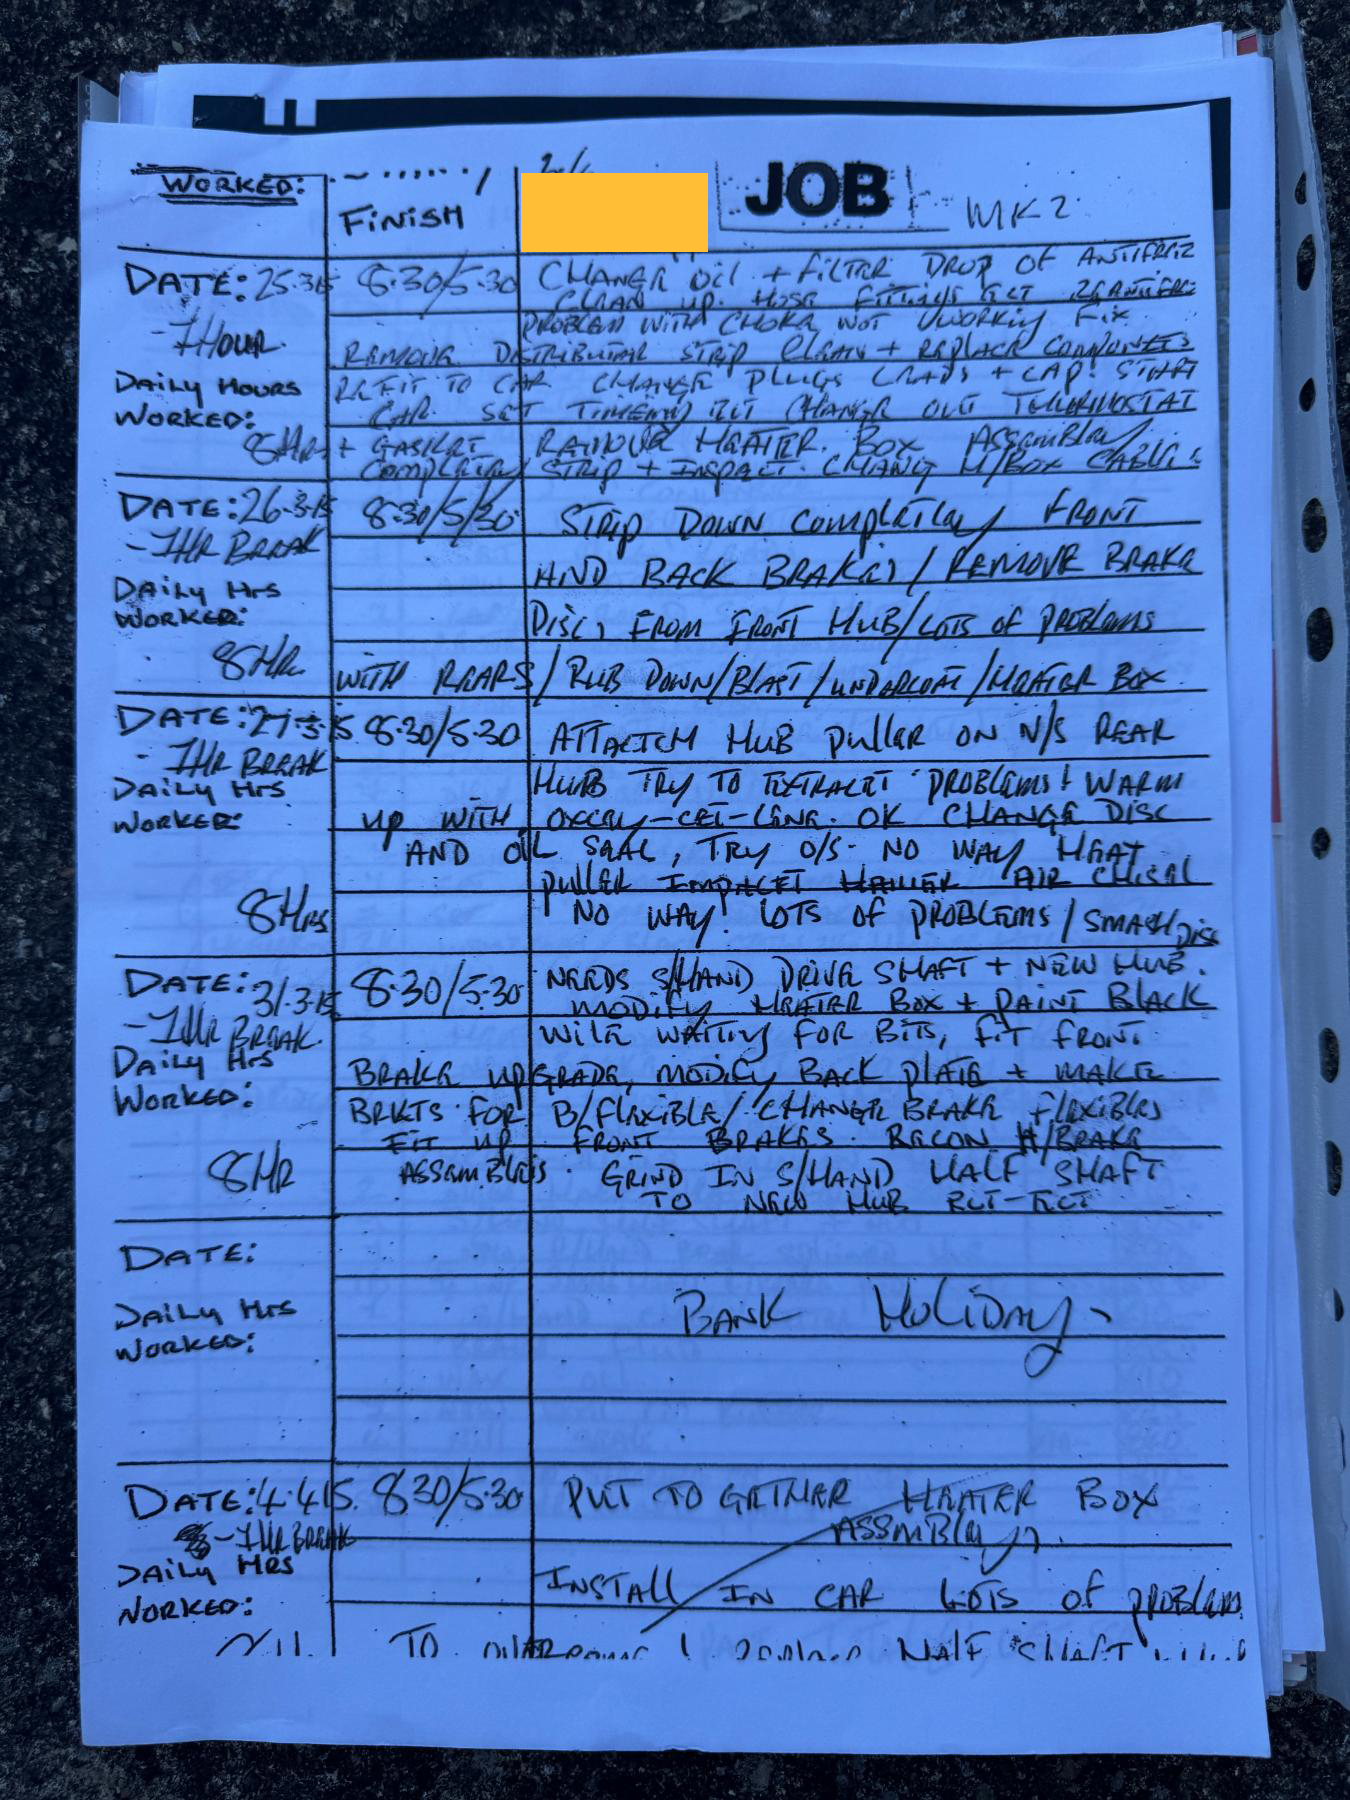 WORKED:
FINISH
JOB
MK2
DATE: 25.3.15 8.30/5.30 CHANGE OIL + FILTER DROP OF ANTIFREZ
CLEAN UP. HOSE FITTINGS ECT
- 1 HOUR. PROBLEM WITH CHOKE NOT WORKING FIX
REMOVE DISTRIBUTAR STRIP CLEAN + REPLACE COMPONETS
DAILY HOURS REFIT TO CAR CHANGE PLUGS LEADS + CAP! START
WORKED: CAR. SET TIMEING ECT CHANGE OUT THURMOSTAT
8Hrs + GASKET REMOVE HEATER. BOX ASSEMBLEY
COMPLETLEY STRIP + INSPECT. CHANG H/BOX CABLES
DATE: 26.3.15 8.30/5/30 STRIP DOWN COMPLETLEY FRONT
- 1HR BREAK AND BACK BRAKES / REMOVE BRAKE
DAILY HrS
WORKED: DISCS FROM FRONT HUB/LOTS OF PROBLEMS
8HR. WITH REARS / RUB DOWN/BLAST/UNDERCOAT/HEATER BOX
DATE: 27.3.15 8.30/5.30 ATTATCH HUB PULLER ON N/S REAR
- 1HR BREAK
DAILY HrS HUB TRY TO EXTRACET PROBLEMS! WARM
WORKED: UP WITH OXCEY-CET-LENE. OK CHANGE DISC
AND OIL SEAL, TRY O/S. NO WAY HEAT
PULLER IMPACET HAMER AIR CHISEL
8Hrs NO WAY! LOTS OF PROBLEMS / SMASH DISC
DATE: 31.3.15 8.30/5.30 NEEDS S/HAND DRIVE SHAFT + NEW HUB.
MODIFY HEATER BOX + PAINT BLACK
- 1HR BREAK. WILE WAITING FOR BITS, FIT FRONT
DAILY HrS BRAKE UPGRADE, MODIFY BACK PLATE + MAKE
WORKED: BRKTS FOR B/FLEXIBLE/ CHANGE BRAKE FLEXIBLES
FIT UP FRONT BRAKES. RECON H/BRAKE
8HR ASSEMBLEIS. GRIND IN S/HAND HALF SHAFT
TO NEW HUB ECT-ECT
DATE:
DAILY HrS BANK HOLIDAY
WORKED:
DATE: 4.4.15. 8.30/5.30 PUT TO GETHER HEATER BOX
- 1HR BREAK ASSEMBLEY
DAILY HRS INSTALL IN CAR LOTS OF PROBLEMS
WORKED:
TO HALF SHAFT